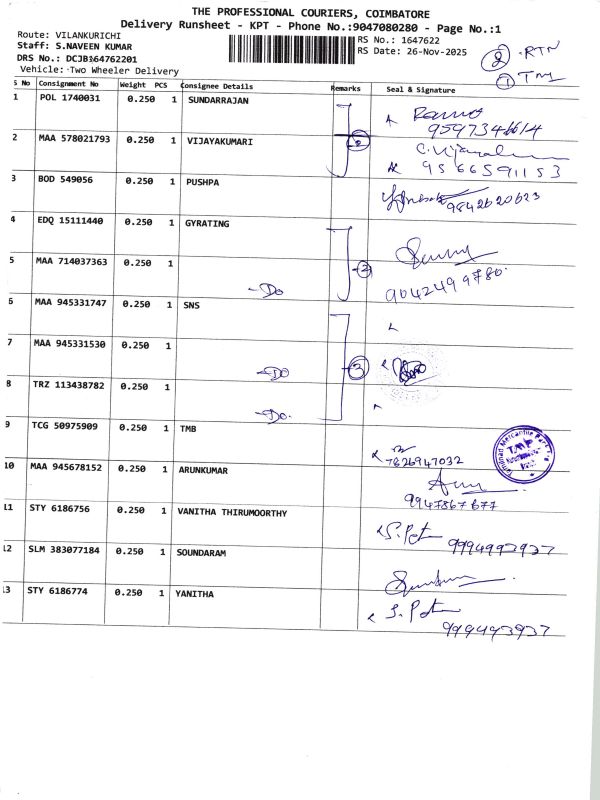 THE PROFESSIONAL COURIERS, COIMBATORE
Delivery Runsheet - KPT - Phone No.:9047080280 - Page No.:1
Route: VILANKURICHI
Staff: S.NAVEEN KUMAR
DRS No.: DCJB164762201
Vehicle: Two Wheeler Delivery
RS No.: 1647622
RS Date: 26-Nov-2025
2 RTN
1 TMJ
S No Consignment No Weight PCS Consignee Details Remarks Seal & Signature
1 POL 1740031 0.250 1 SUNDARRAJAN
2 MAA 578021793 0.250 1 VIJAYAKUMARI
9566591153
3 BOD 549056 0.250 1 PUSHPA
9842620623
4 EDQ 15111440 0.250 1 GYRATING
5 MAA 714037363 0.250 1 -Do 2
9042499780
6 MAA 945331747 0.250 1 SNS
7 MAA 945331530 0.250 1 -Do 3
8 TRZ 113438782 0.250 1 -Do.
9 TCG 50975909 0.250 1 TMB
7826947032
10 MAA 945678152 0.250 1 ARUNKUMAR
9947867677
11 STY 6186756 0.250 1 VANITHA THIRUMOORTHY
9994993937
12 SLM 383077184 0.250 1 SOUNDARAM
13 STY 6186774 0.250 1 YANITHA
999493937